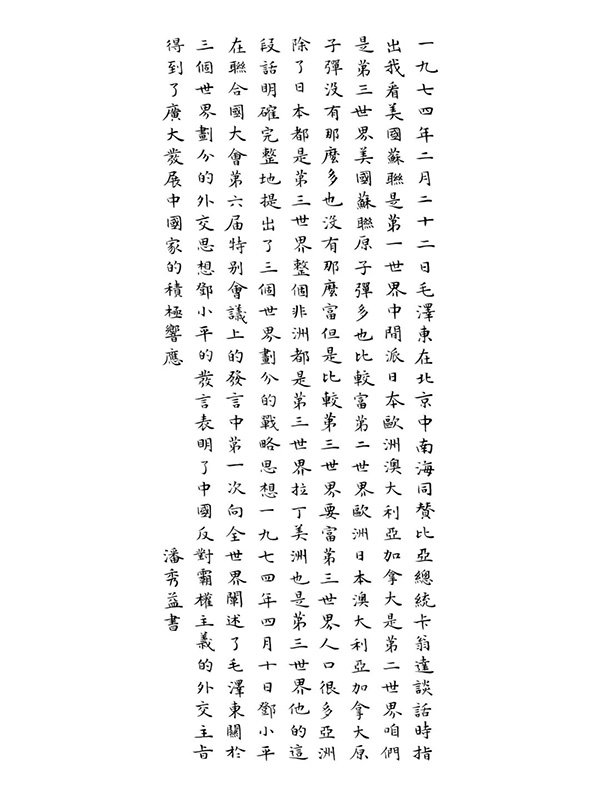 一九七四年二月二十二日毛澤東在北京中南海同贊比亞總統卡翁達談話時指
出我看美國蘇聯是第一世界中間派日本歐洲澳大利亞加拿大是第二世界咱們
是第三世界美國蘇聯原子彈多也比較富第二世界歐洲日本澳大利亞加拿大原
子彈没有那麼多也没有那麼富但是比較第三世界要富第三世界人口很多亞洲
除了日本都是第三世界整個非洲都是第三世界拉丁美洲也是第三世界他的這
段話明確完整地提出了三個世界劃分的戰略思想一九七四年四月十日鄧小平
在聯合國大會第六届特别會議上的發言中第一次向全世界闡述了毛澤東關於
三個世界劃分的外交思想鄧小平的發言表明了中國反對霸權主義的外交主旨
得到了廣大發展中國家的積極響應
潘秀益書